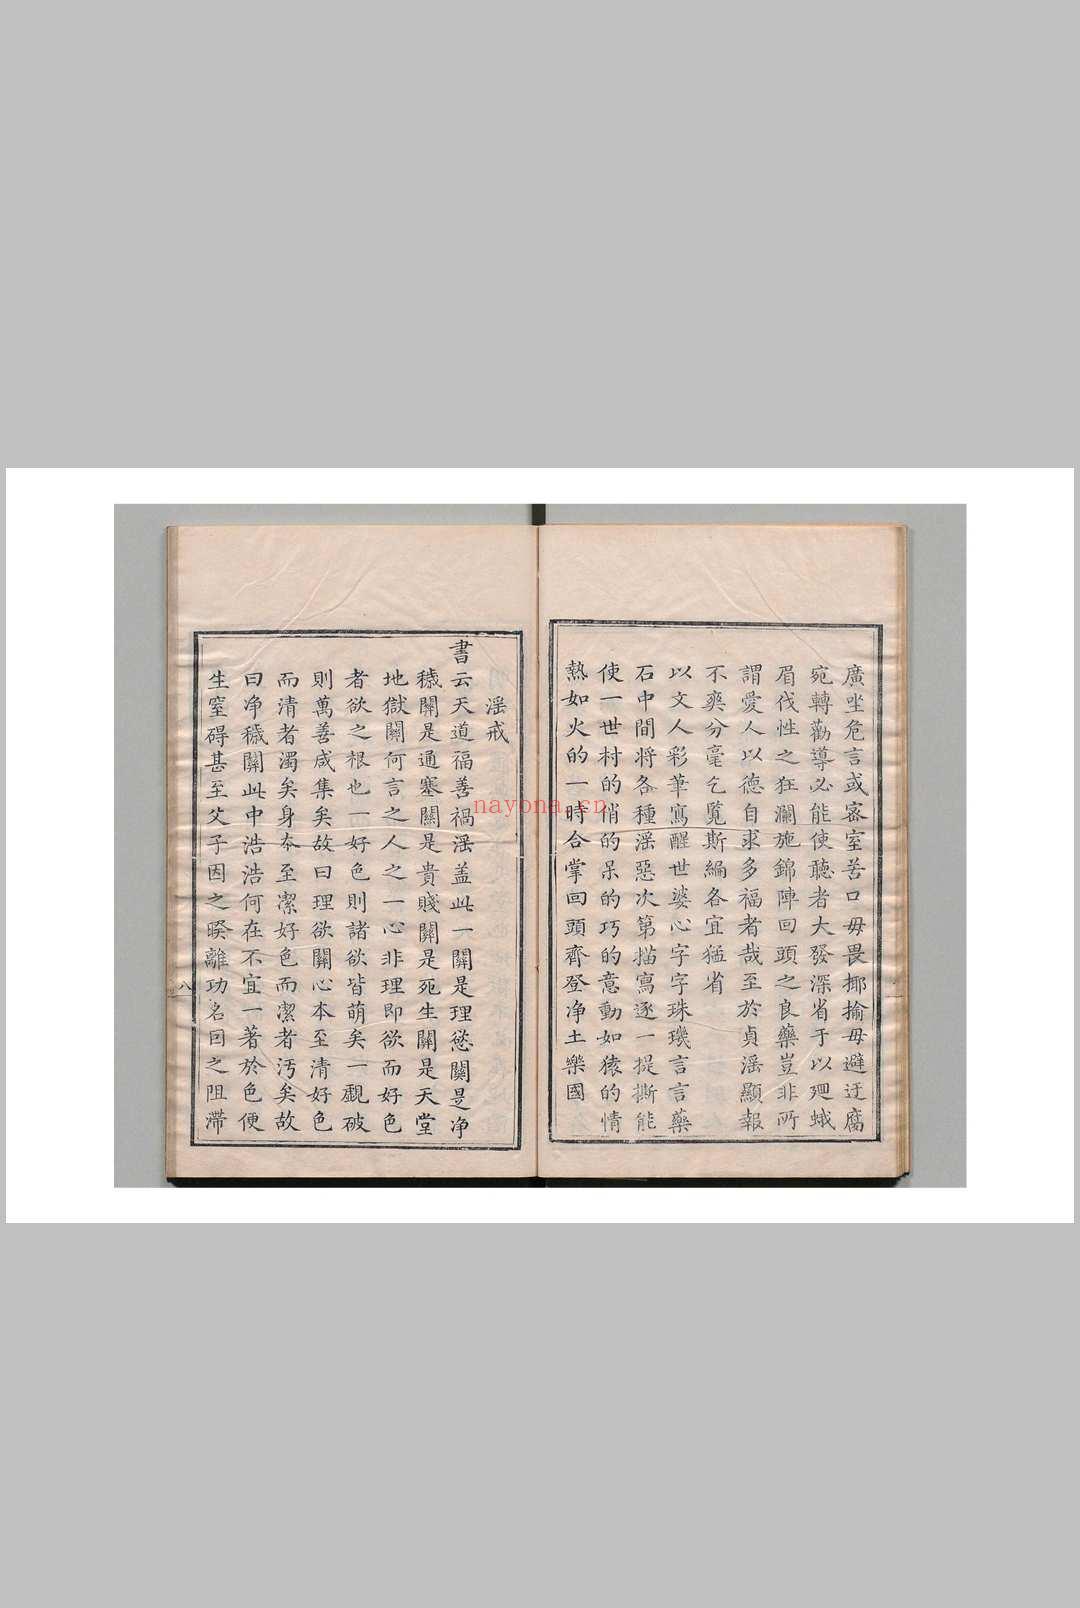 廣坐危言或密室苦口毋畏揶揄毋避迂腐
宛轉勸導必能使聽者大發深省于以廻蛾
眉伐性之狂瀾施錦陣回頭之良藥豈非所
謂愛人以德自求多福者哉至於貞滛顯報
不爽分毫乞覽斯編各宜猛省
以文人彩筆寫醒世婆心字字珠璣言言藥
石中間將各種滛惡次第描寫逐一提撕能
使一世村的俏的呆的巧的意動如猿的情
熱如火的一時合掌回頭齊登净土樂國
滛戒
書云天道福善禍滛盖此一關是理慾關是净
穢關是通塞關是貴賤關是死生關是天堂
地獄關何言之人之一心非理即欲而好色
者欲之根也一好色則諸欲皆萌矣一覷破
則萬善咸集矣故曰理欲關心本至清好色
而清者濁矣身夲至潔好色而潔者汚矣故
曰净穢關此中浩浩何在不宜一著於色便
生窒碍甚至父子因之睽離功名因之阻滯
八
nayona.cn